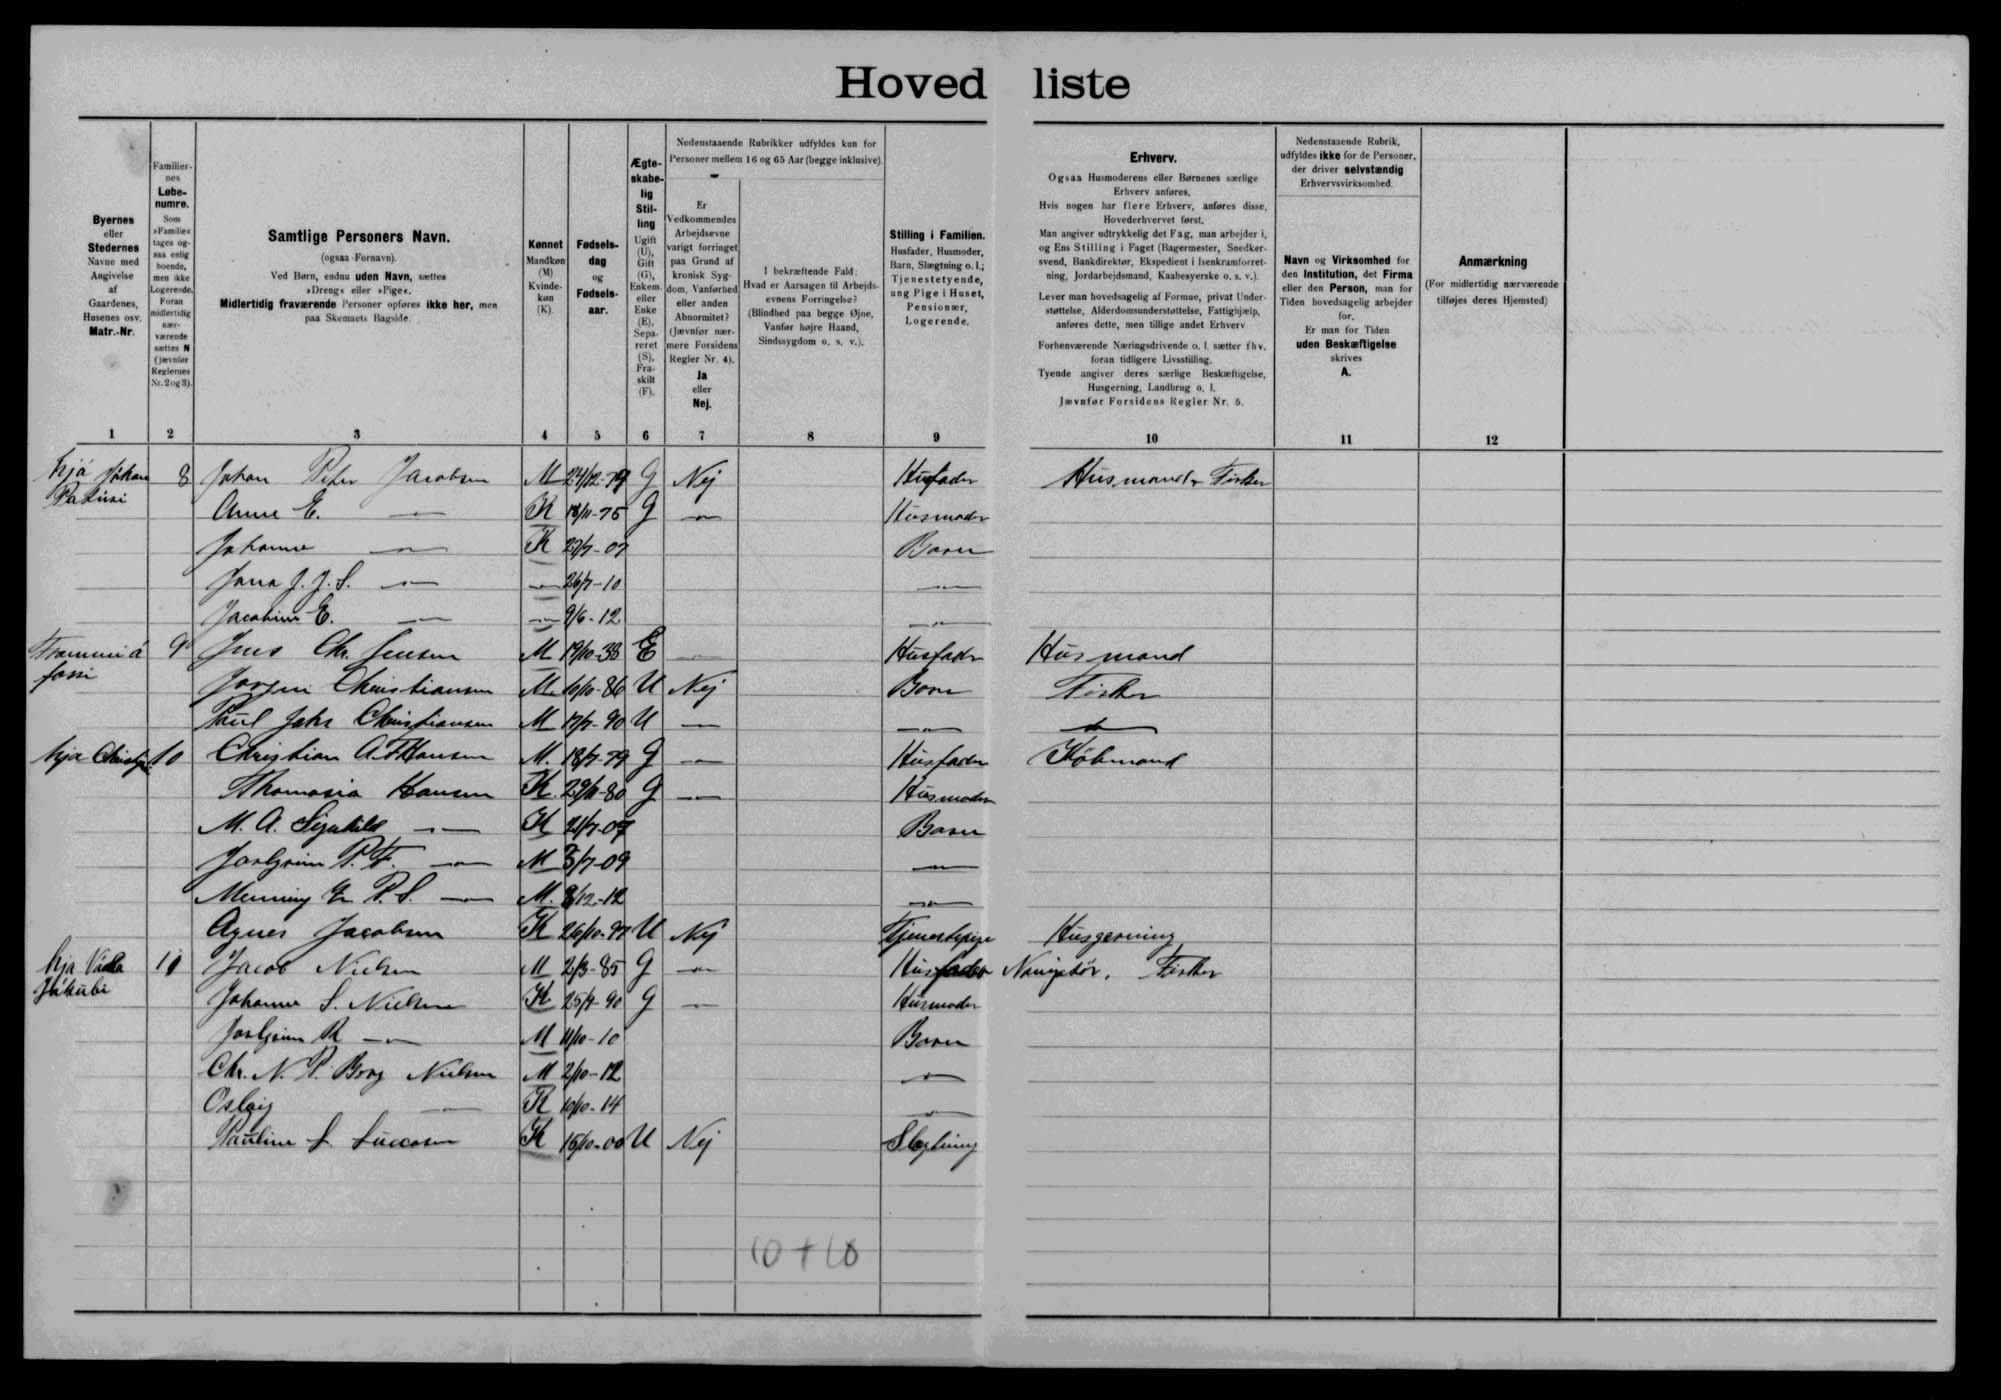 Hovedliste
Byernes eller Stedernes Navne med Angivelse af Gaardenes, Husenes osv. Matr.-Nr.
Familiernes Løbenumre. Som »Familie« tages ogsaa enlig boende, men ikke Logerende. Foran midlertidig nærværende sættes N (jævnfør Reglernes Nr. 2 og 3).
Samtlige Personers Navn. (ogsaa Fornavn). Ved Børn, endnu uden Navn, sættes »Dreng« eller »Pige«. Midlertidig fraværende Personer opføres ikke her, men paa Skemaets Bagside.
Kønnet Mandkøn (M) Kvindekøn (K).
Fødselsdag og Fødselsaar.
Ægteskabelig Stilling Ugift (U), Gift (G), Enkem. eller Enke (E), Separeret (S), Fraskilt (F).
Nedenstaaende Rubrikker udfyldes kun for Personer mellem 16 og 65 Aar (begge inklusive).
Er Vedkommendes Arbejdsevne varigt forringet paa Grund af kronisk Sygdom, Vanførhed eller anden Abnormitet? (Jævnfør nærmere Forsidens Regler Nr. 4). Ja eller Nej.
I bekræftende Fald: Hvad er Aarsagen til Arbejdsevnens Forringelse? (Blindhed paa begge Øjne, Vanfør højre Haand, Sindssygdom o. s. v.).
Stilling i Familien. Husfader, Husmoder, Barn, Slægtning o. l.; Tjenestetyende, ung Pige i Huset, Pensionær, Logerende.
Erhverv.
Ogsaa Husmoderens eller Børnenes særlige Erhverv anføres.
Hvis nogen har flere Erhverv, anføres disse, Hovederhvervet først.
Man angiver udtrykkelig det Fag, man arbejder i, og Ens Stilling i Faget (Bagermester, Snedkersvend, Bankdirektør, Ekspedient i Isenkramforretning, Jordarbejdsmand, Kaabesyerske o. s. v.).
Lever man hovedsagelig af Formue, privat Understøttelse, Alderdomsunderstøttelse, Fattighjælp, anføres dette, men tillige andet Erhverv
Forhenværende Næringsdrivende o. l. sætter fhv. foran tidligere Livsstilling.
Tyende angiver deres særlige Beskæftigelse, Husgerning, Landbrug o. l.
Jævnfør Forsidens Regler Nr. 5.
Nedenstaaende Rubrik, udfyldes ikke for de Personer, der driver selvstændig Erhvervsvirksomhed.
Navn og Virksomhed for den Institution, det Firma eller den Person, man for Tiden hovedsagelig arbejder for. Er man for Tiden uden Beskæftigelse skrives A.
Anmærkning (For midlertidig nærværende tilføjes deres Hjemsted)
1 2 3 4 5 6 7 8 9 10 11 12
hjá Jóhan 8 Johan Peter Jacobsen M 24/12-79 G Nej Husfader Husmand, Fisker
Anne E. — K 18/11-75 G — Husmoder
Johanne — K 27/7-07 Barn
J. J. S. — — 26/7-10 —
Jacobine E. — — 9/6-12 —
9 Jens Chr. Jensen M 19/10-38 E — Husfader Husmand
Jørgen Christiansen M. 10/10-86 U Nej Barn Fisker
Paul Johs Christiansen M 17/7-90 U — — —
hja 10 Christian A. F. Hansen M. 18/7-79 G — Husfader Købmand
Thomasia Hansen K. 29/11-80 G — Husmoder
M. A. — K 21/7-07 Barn
P. F. — M 5/7-09 —
P. S. — M. 8/12-12 —
Agnes Jacobsen K 26/10-97 U Nej Tjenestepige Husgerning
hja 11 Jacob Nielsen M 2/3-85 G — Husfader Navigatør, Fisker
Jákubi Johanne S. Nielsen K 25/9-90 G — Husmoder
R — M 11/10-10 Barn
Chr. N. P. Berg Nielsen M 2/10-12 —
Oslaig — K 10/10-14 —
Pauline S. K 15/10-00 U Nej Slægtning
10 + 10